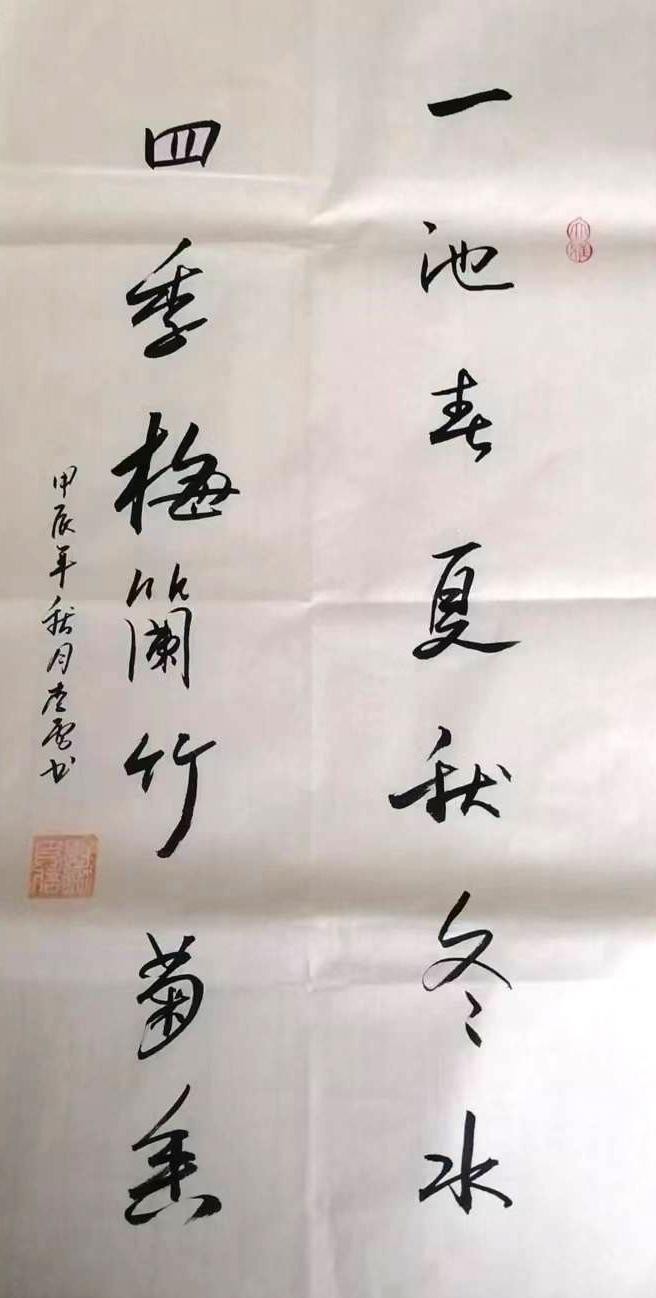 一池春夏秋冬水
四季梅蘭竹菊香
甲辰年秋月 书